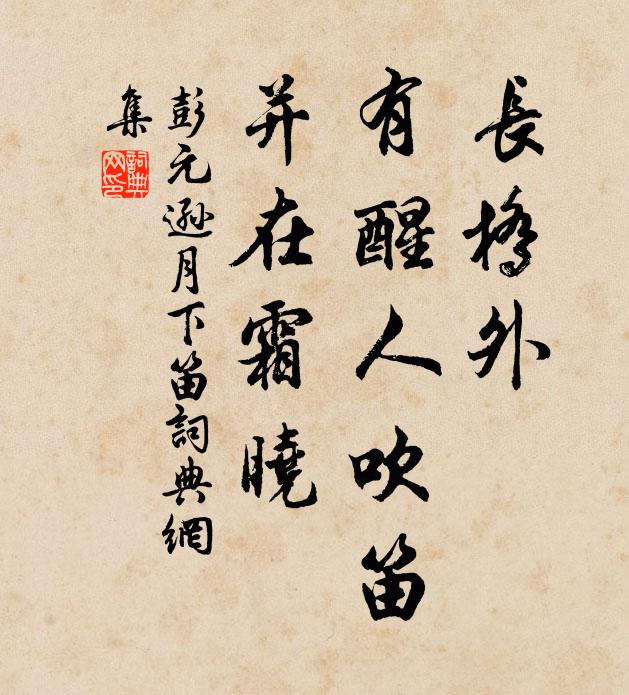 長橋外
有醒人吹笛
并在霜曉
彭元遜月下笛詞典網
集
詞典
網印